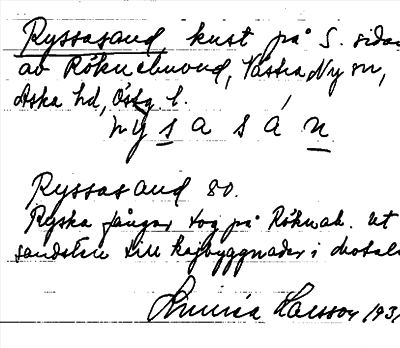 Ryssasand kust på S. sidan
av Röknebmond, Västra Ny sn,
Aska hd, Östg l.
rysasán
Ryssasand 80.
Ryska fångar tog på Röknab. ut
sandsten till kajbyggnader i Motala
Linnéa Larsson 1931